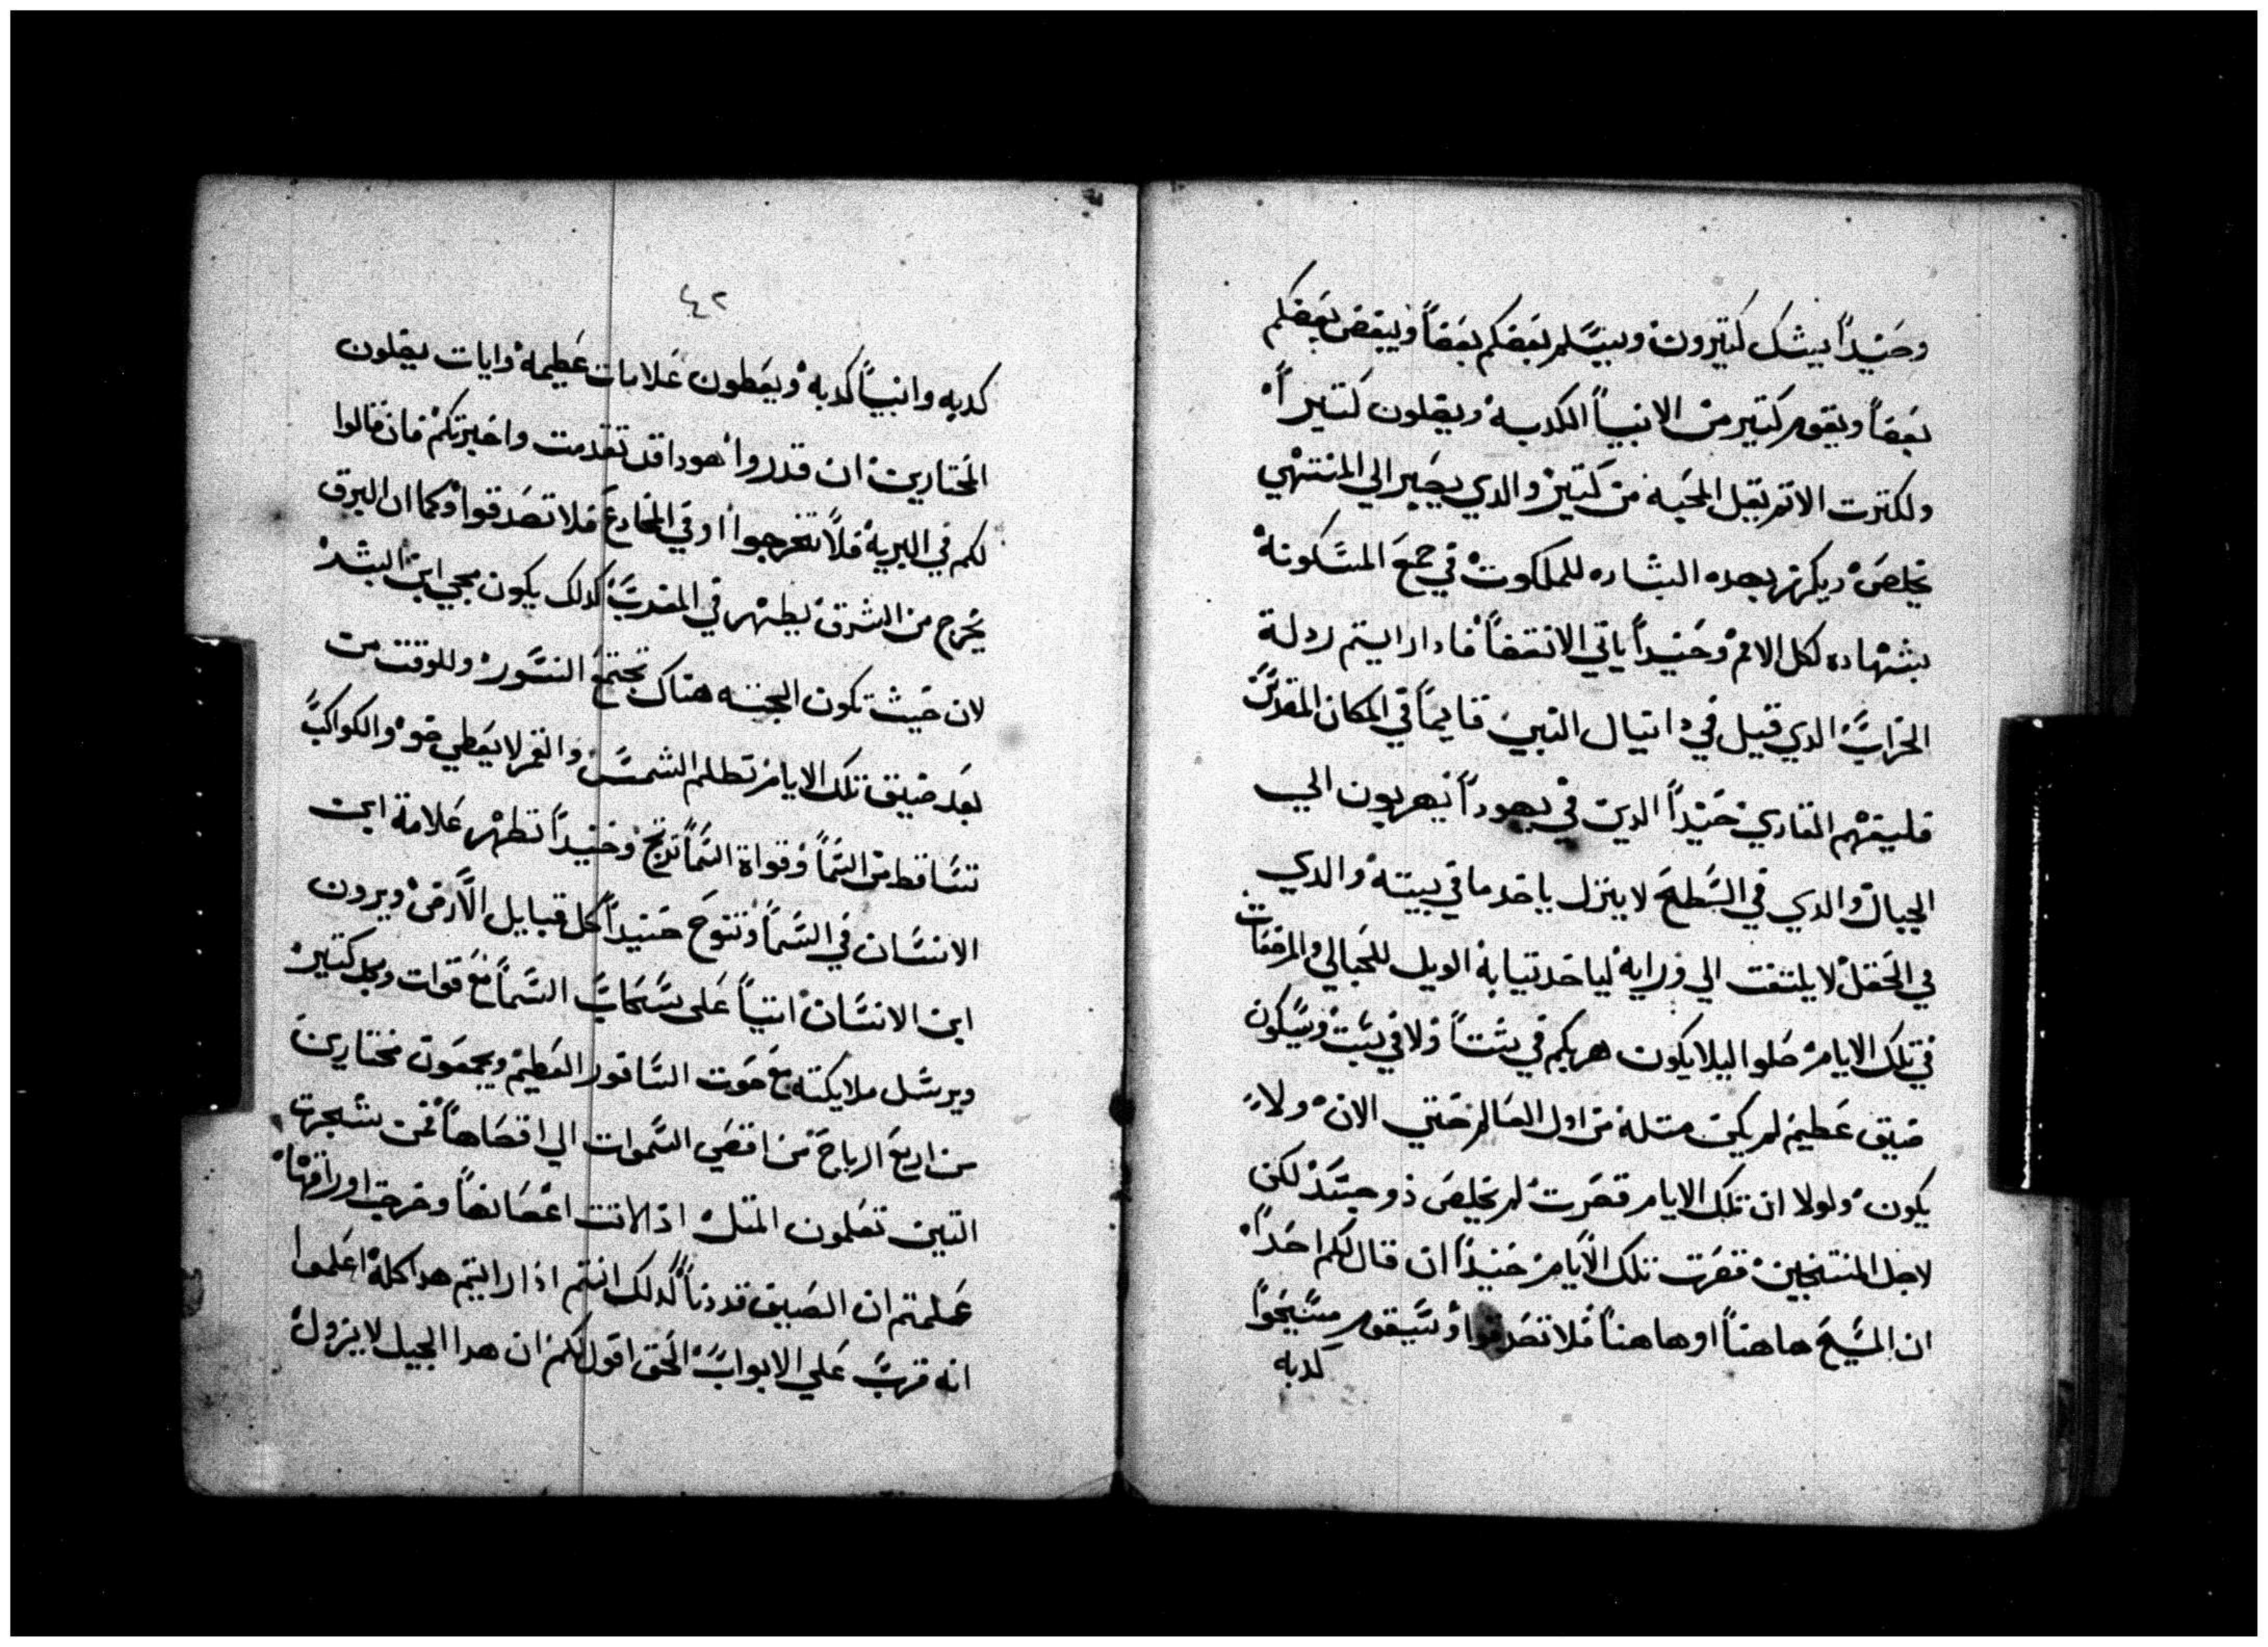 وحنيداً يشك كتيرون ويسلم بعضكم بعضاً ويبغض بعضكم
بعضاً ويقوم كتير من الانبياً الكدبه ويضلون كتيراً
ولكترت الاتم تقل المحبه من كتير والدي يصبر الي المنتهي
يخلص ويكرز بهده البشاره للملكوت في جميع المسكونة
بشهاده لكل الامم وحنيداً ياتي الانقضاً فادا رايتم ردلة
الخراب الدي قيل في دانيال النبي قايماً في المكان المقدس
فليفهم القاري حنيداً الدين في يهوداً يهربون الي
الجبال والدي في السطح لا ينزل ياخد ما في بيته والدي
في الحقل لا يلتفت الي ورايه لياخد تيابة الويل للحبالي والمرضعات
في تلك الايام صلوا ليلا يكون هربكم في شتاً ولا في سبت وسيكون
ضيق عظيم لم يكن متله من اول العالم حتي الان ولا
يكون ولولا ان تلك الايام قصرت لم يخلص ذو جسد لكن
لاجل المنتخبين قصرت تلك الايام حنيداً ان قال لكم احداً
ان المسيح هاهناً او هاهناً فلا تصدقوا وسيقوم مسيحوا
كدبه
٤٢
كدبه وانبياً كدبه ويعطون علامات عظيمه وايات يضلون
المختارين ان قدروا هودا قد تقدمت واخبرتكم فان قالوا
لكم في البريه فلا تخرجوا او في المخادع فلا تصدقوا وكما ان البرق
يخرج من الشرق يظهر في المغرب كدلك يكون مجي ابن البشر
لان حيث تكون الجتته هناك تجتمع النسور وللوقت من
بعد ضيق تلك الايام تظلم الشمس والقمر لا يعطي ضوه والكواكب
تتساقط من السماً وقواة السماً ترتج وحنيداً تظهر علامة ابن
الانسان في السماً وتنوح حنيداً كل قبايل الارض ويرون
ابن الانسان اتياً علي سحاب السماً مع قوات ومجد كتير
ويرسل ملايكته مع صوت السافور العظيم ويجمعون مختارين
من اربع الرياح من اقصي السموات الي اقصاهاً فمن شجرت
التين تعلمون المتل اذا لانت اغصانهاً وخرجت اوراقها
علمتم ان الصيف قد دناً كدلك انتم اذا رايتم هدا كله اعلموا
انه قرب علي الابواب الحق اقول لكم ان هدا الجيل لا يزول